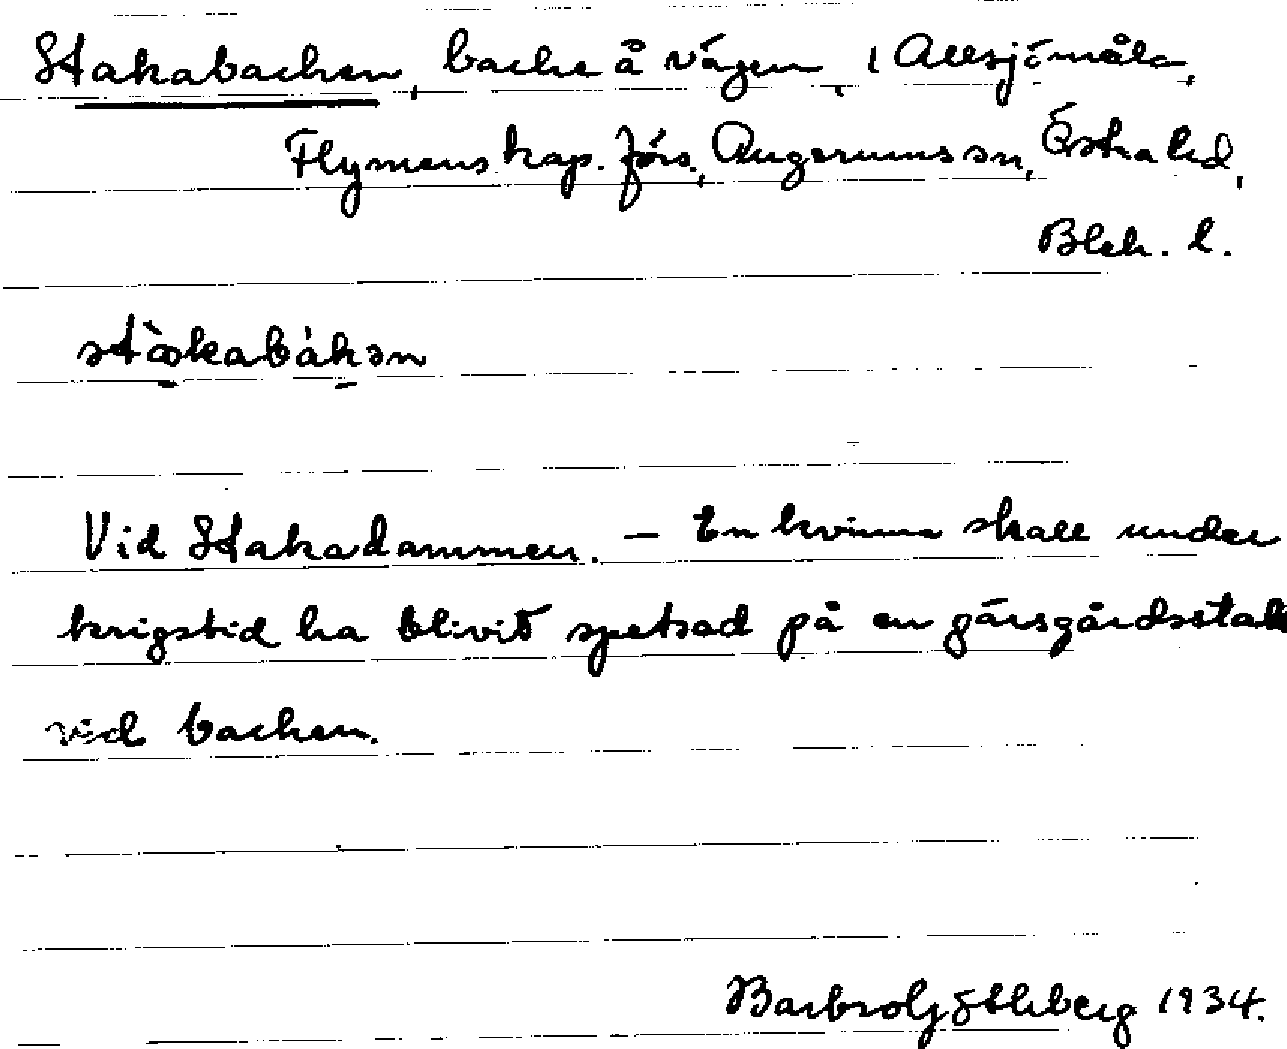 Stakabacken, backe å vägen, i Allsjömåla,
Flymens kap. förs., Augerums sn, Östra hd,
Blek. l.
stàkabákən
Vid Stakadammen. — En kvinna skall under
krigstid ha blivit spetsad på en gärsgårdsstake
vid backen.
Barbro Götlberg 1934.